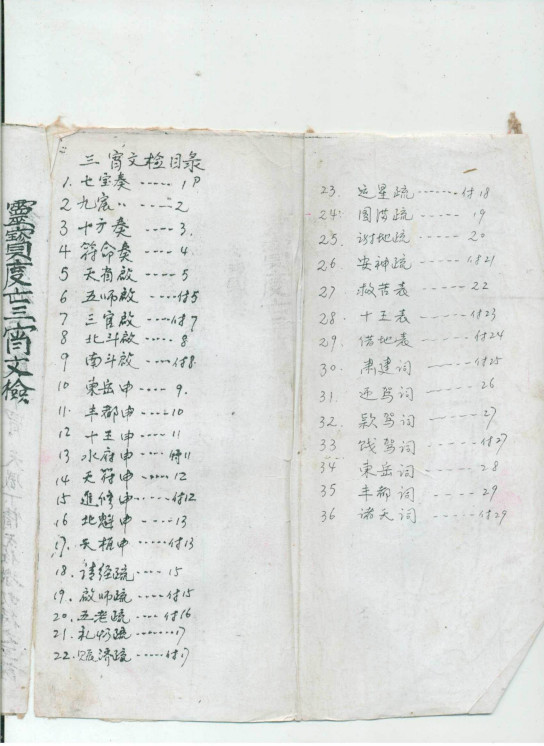 靈寶度亡三宵文檢
三宵文检目录
1. 七宝奏 ····· 1P
2 九宸 〃 ···· 2
3 十方奏 ···· 3.
4 符命奏 ···· 4.
5 天省啟 ···· 5
6 五师啟 ···· 付5
7 三官啟 ···· 付7
8 北斗啟 ···· 8
9 南斗啟 ···· 付8
10 東岳申 ···· 9.
11. 丰都申 ···· 10
12 十王申 ···· 11
13 水府申 ···· 付11
14 天符申 ···· 12
15 進修申 ···· 付12
16 北魁申 ···· 13
17. 天枢申 ···· 付13
18. 请经疏 ···· 15
19. 啟师疏 ···· 付15
20. 五老疏 ···· 付16
21. 礼 疏 ···· 17
22. 赈濟疏 ····· 付17
23. 运星疏 ······ 付18
24. 疏 ····· 19
25. 谢地疏 ···· 20
26. 安神疏 ···· 付21
27 救苦表 ···· 22
28. 十王表 ···· 付23
29. 借地表 ···· 付24
30. 肃建词 ···· 付25
31. 迓驾词 ···· 26
32. 款驾词 ···· 27
33 饯驾词 ···· 付27
34 東岳词 ···· 28
35 丰都词 ···· 29
36 诸天词 ···· 付29